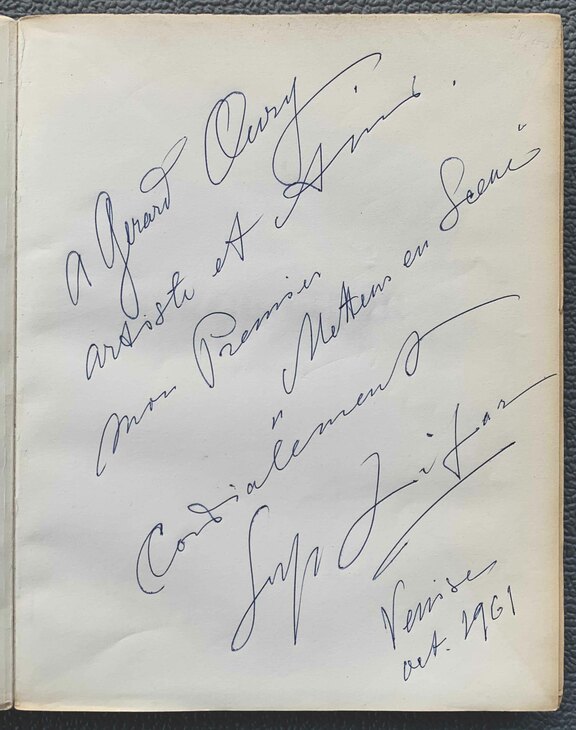 A Gerard Oury
artiste et Ami.
mon Premier
"Metteur en Scène"
Cordialement
Serge Lifar
Venise
oct. 1961